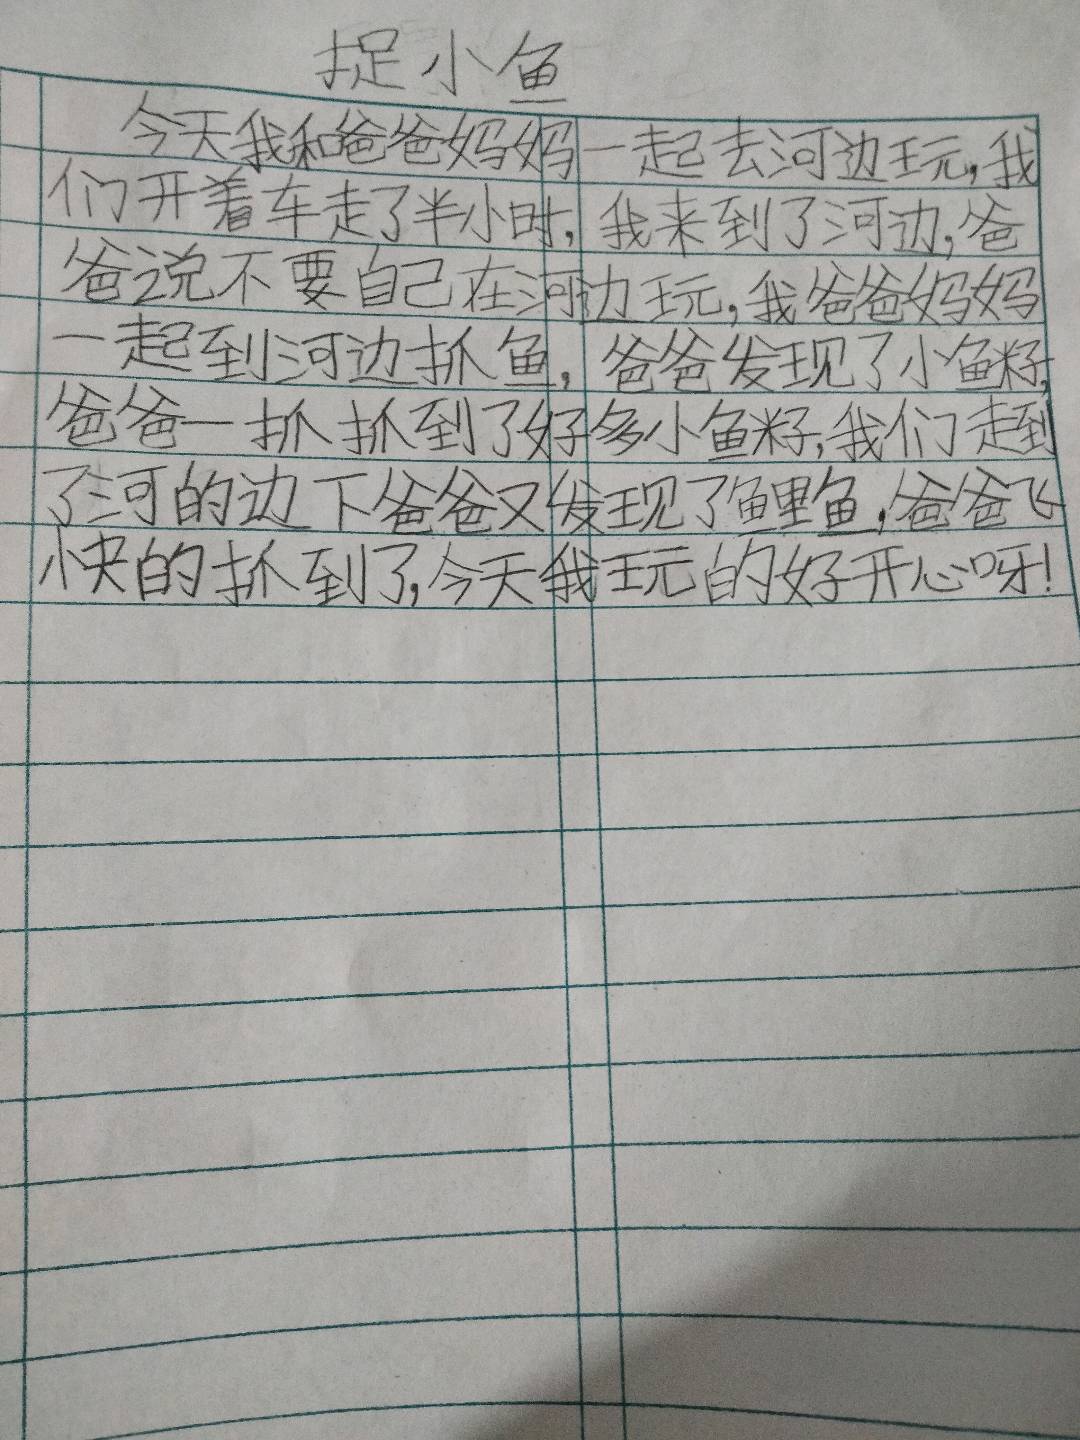 捉小鱼
今天我和爸爸妈妈一起去河边玩,我
们开着车走了半小时,我来到了河边,爸
爸说不要自己在河边玩,我爸爸妈妈
一起到河边抓鱼,爸爸发现了小鱼籽,
爸爸一抓抓到了好多小鱼籽,我们走到
了河的边下爸爸又发现了鲤鱼,爸爸飞
快的抓到了,今天我玩的好开心呀!